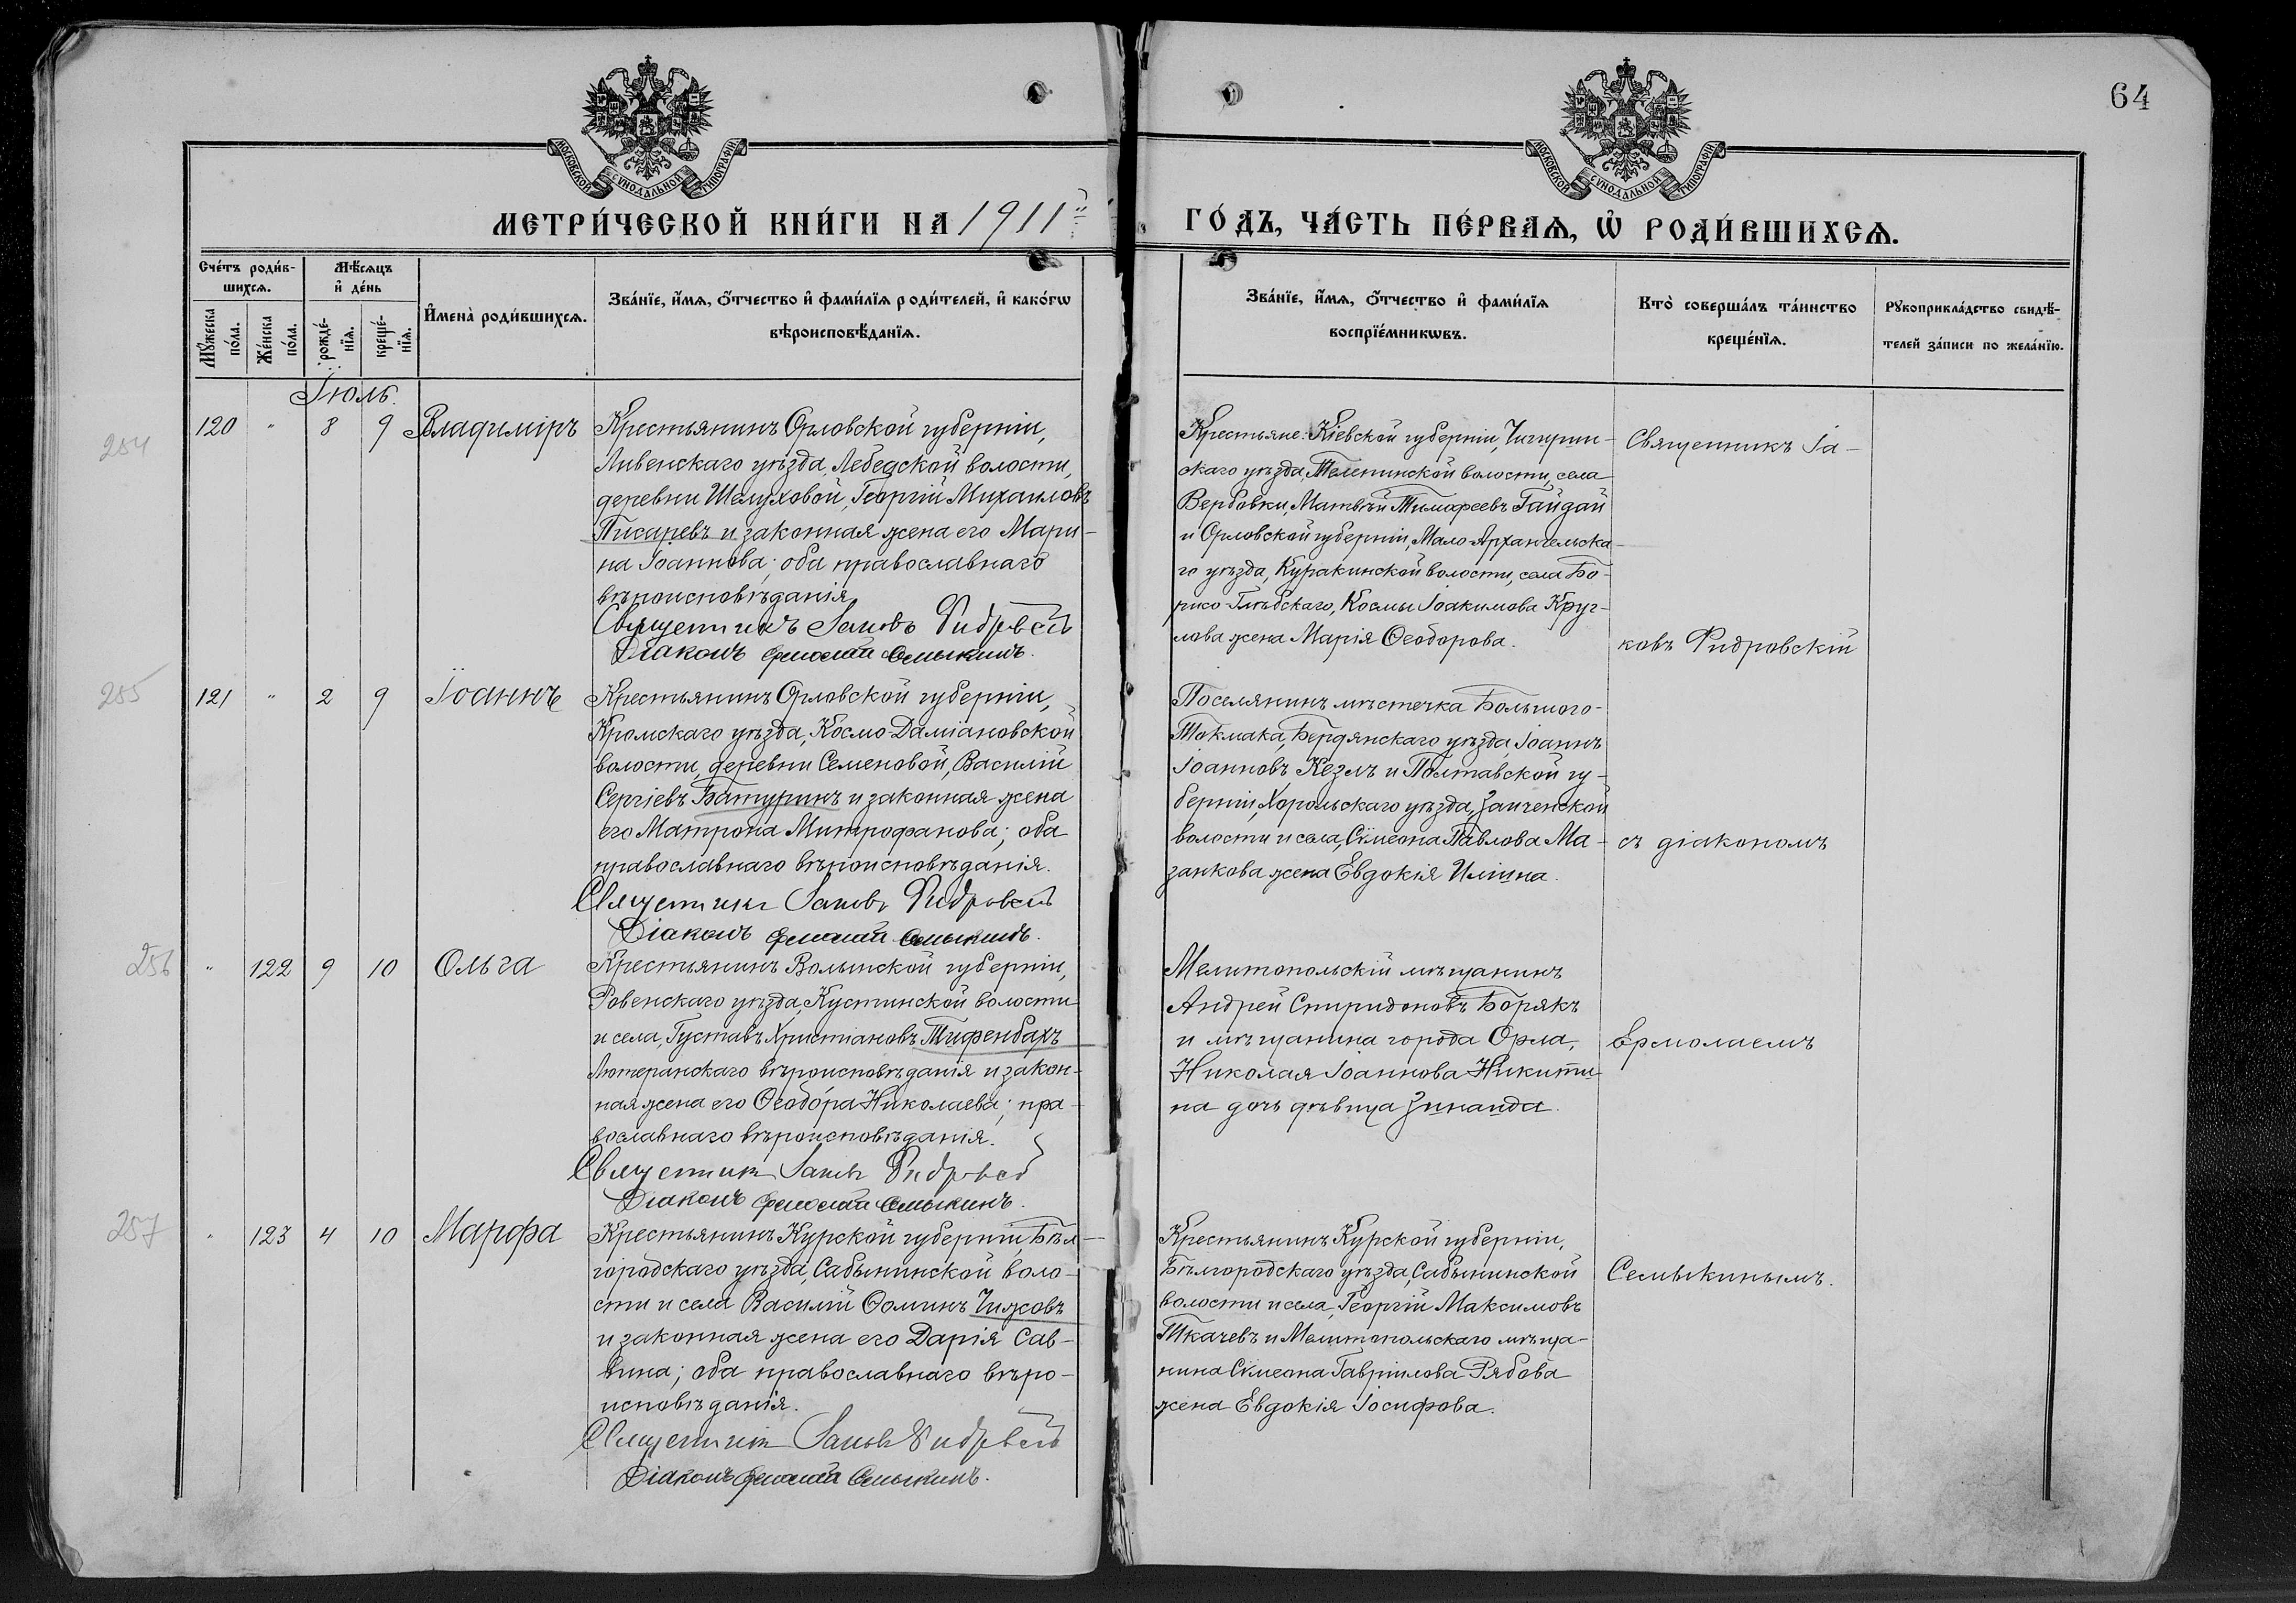 64
МОСКОВСКОЙ СѴНОДАЛЬНОЙ ТИПОГРАФІИ
МОСКОВСКОЙ СѴНОДАЛЬНОЙ ТИПОГРАФІИ
МЕТРИ́ЧЕСКОЙ КНИ́ГИ НА 1911й
ГО́ДЪ, ЧА́СТЬ ПЕ́РВАѦ, Ѡ҆ РОДИ́ВШИХСѦ.
Сче́тъ роди́в-
шихсѧ.
Мꙋ́жеска по́ла.
Же́нска по́ла.
Мѣ́сѧцъ
и҆ де́нь
рожде́-
нїѧ.
креще́-
нїѧ.
И҆мена̀ роди́вшихсѧ.
Зва́нїе, и҆́мѧ, ѻ҆́тчество и҆ фами́лїѧ роди́телей, и҆ како́гѡ
вѣроисповѣ́данїѧ.
Зва́нїе, и҆́мѧ, ѻ҆́тчество и҆ фами́лїѧ
воспрїе́мникѡвъ.
Кто̀ соверша́лъ та́инство
креще́нїѧ.
Рꙋкоприкла́дство свидѣ́-
телей за́писи по жела́нїю.
Іюль.
254
120 " 8 9 Владиміръ
Крестьянинъ Орловской губерніи,
Ливенскаго уѣзда, Лебедской волости,
деревни Шелуховой, Георгій Михаиловъ
Писаревъ и законная жена его Мари-
на Іоаннова; оба православнаго
вѣроисповѣданія.
Священникъ Іаковъ Ридровскій
Діаконъ Ермолай Семыкинъ.
Крестьяне: Кіевской губерніи, Чигирин-
скаго уѣзда, Телепинской волости, села
Вербовки, Матвѣй Тимофеевъ Гайдай
и Орловской губерніи, Мало-Архангельска-
го уѣзда, Куракинской волости, села Бо-
рисо-Глѣбскаго, Космы Іоакимова Круг-
лова жена Марія Ѳеодорова.
Священникъ Іа-
ковъ Ридровскій
255
121 " 2 9 Іоаннъ
Крестьянинъ Орловской губерніи,
Кромскаго уѣзда, Космо-Даміановской
волости, деревни Семеновой, Василій
Сергіевъ Батуринъ и законная жена
его Матрона Митрофанова; оба
православнаго вѣроисповѣданія.
Священникъ Іаковъ Ридровскій
Діаконъ Ермолай Семыкинъ.
Поселянинъ мѣстечка Большого-
Токмака, Бердянскаго уѣзда, Іоаннъ
Іоанновъ Кезлъ и Полтавской гу-
берніи, Хорольскаго уѣзда, Заиченской
волости и села, Сѵмеона Павлова Ма-
занкова жена Евдокія Иліина.
съ діакономъ
256
" 122 9 10 Ольга
Крестьянинъ Волынской губерніи,
Ровенскаго уѣзда, Кустинской волости
и села, Густавъ Христіановъ Тифенбахъ
Лютеранскаго вѣроисповѣданія и закон-
ная жена его Ѳеодора Николаева; пра-
вославнаго вѣроисповѣданія.
Священникъ Іаковъ Ридровскій
Діаконъ Ермолай Семыкинъ.
Мелитопольскій мѣщанинъ
Андрей Спиридоновъ Борякъ
и мѣщанина города Орла,
Николая Іоаннова Никити-
на дочь дѣвица Зинаида.
Ермолаемъ
257
" 123 4 10 Марфа
Крестьянинъ Курской губерніи, Бѣл-
городскаго уѣзда, Сабынинской воло-
сти и села Василій Ѳоминъ Чижовъ
и законная жена его Дарія Сав-
вина; оба православнаго вѣро-
исповѣданія.
Священникъ Іаковъ Ридровскій
Діаконъ Ермолай Семыкинъ.
Крестьянинъ Курской губерніи,
Бѣлгородскаго уѣзда, Сабынинской
волости и села, Георгій Максимовъ
Ткачевъ и Мелитопольскаго мѣща-
нина Сѵмеона Гавріилова Рябова
жена Евдокія Іосифова.
Семыкинымъ.